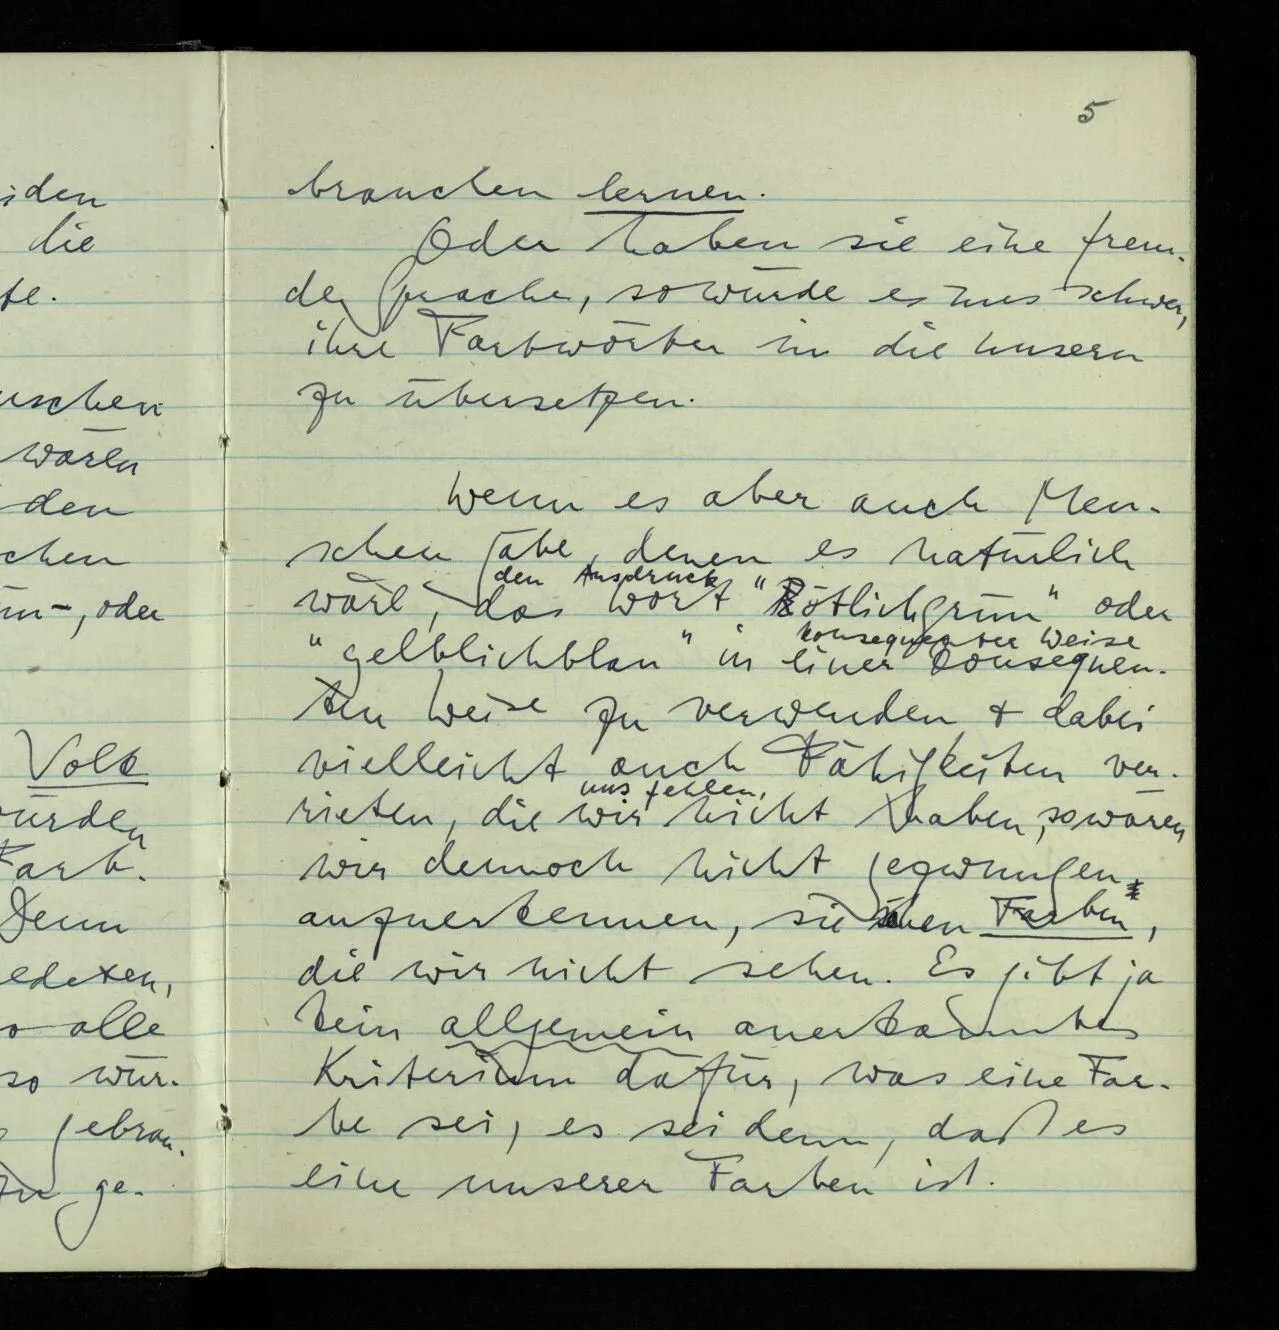 5
iden
die
te.
uschen
wären
den
chen
ün-, oder
Volk
würden
Farb-
Denn
redeten,
so alle
so wür-
gebrau-
zu ge-
brauchen lernen.
Oder haben sie eine frem-
de Sprache, so würde es uns schwer,
ihre Farbwörter in die unsern
zu übersetzen.
Wenn es aber auch Men-
schen gäbe, denen es natürlich
den Ausdruck
wäre, das Wort "Rötlichgrün" oder
konsequenter Weise
"gelblichblau" in einer konsequen-
ten Weise zu verwenden & dabei
vielleicht auch Fähigkeiten ver-
uns fehlen,
rieten, die wir nicht haben, so wären
wir dennoch nicht gezwungen
anzuerkennen, sie sehen Farben,
die wir nicht sehen. Es gibt ja
kein allgemein anerkanntes
Kriterium dafür, was eine Far-
be sei, es sei denn, daß es
eine unserer Farben ist.